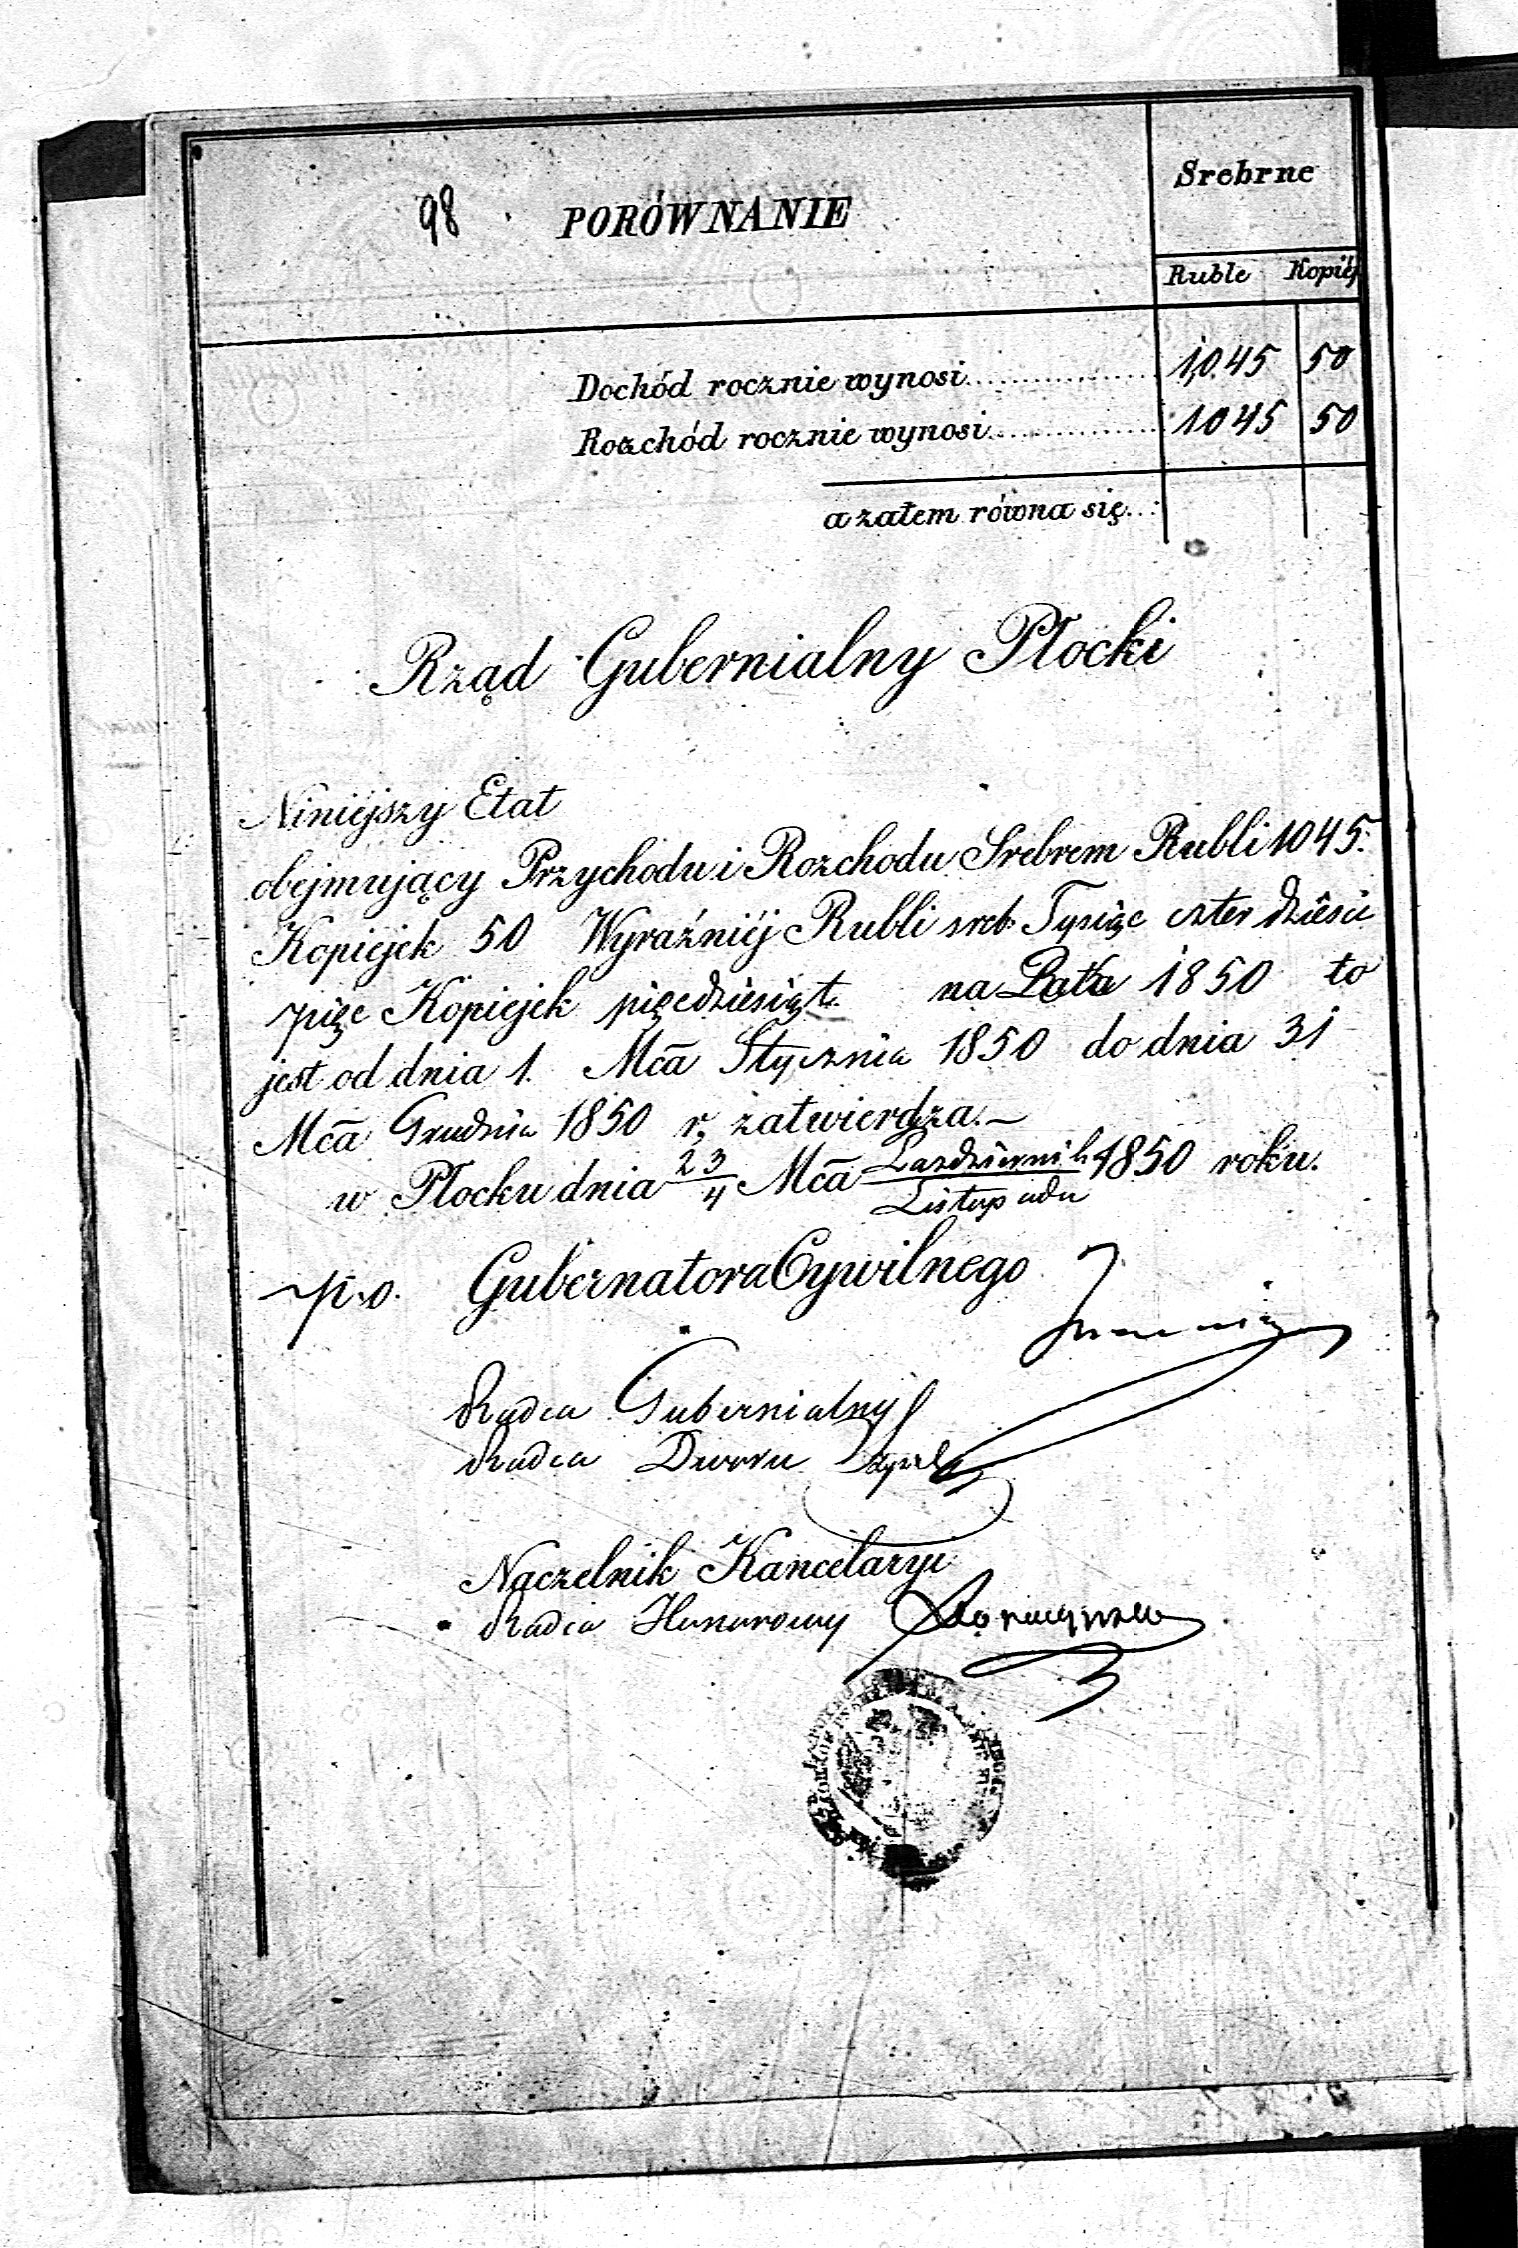 98
PORÓWNANIE
Srebrne
Ruble Kopiéj
Dochód rocznie wynosi 1,045 50
Rozchód rocznie wynosi 1045 50
a zatem równa się
Rząd Gubernialny Płocki
Niniéjszy Etat
obejmujący Przychodu i Rozchodu Srebrem Rubli 1045.
Kopiejek 50 Wyraźniéj Rubli sreb. Tysiąc czterdzieści
pięc Kopiejek pięcdziesiąt na Lata 1850 to
jest od dnia 1. Mcā Stycznia 1850 do dnia 31
Mcā Grudnia 1850 r. zatwierdza.—
w Płocku dnia 23/4 Mcā Pazdziernik/Listopada 1850 roku.
p.o. Gubernatora Cywilnego
Radca Gubernialny
Radca Dworu
Naczelnik Kancelaryi
Radca Honorowy